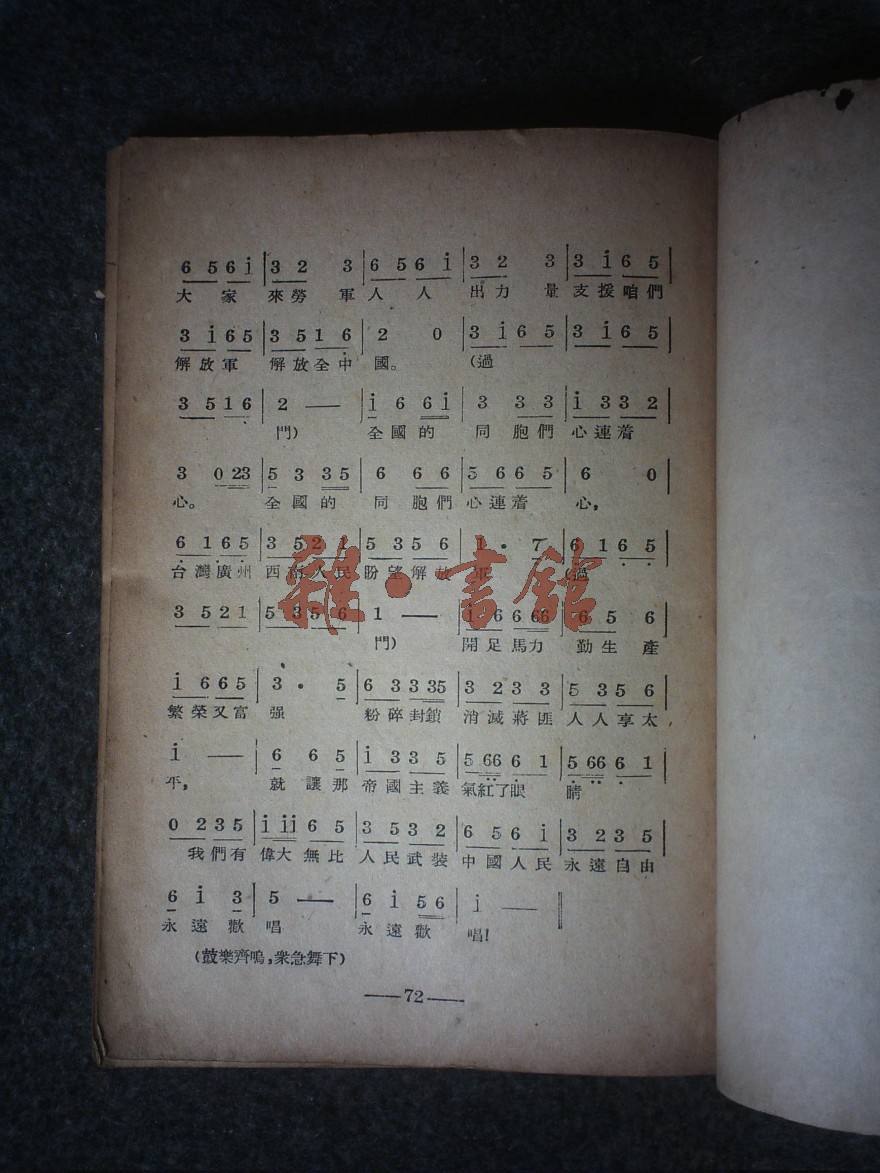 6 5 6 i | 3 2 3 | 6 5 6 i | 3 2 3 | 3 i 6 5 |
大家 來勞軍 人人 出力量 支援咱們
3 i 6 5 | 3 5 1 6 | 2 0 | 3 i 6 5 | 3 i 6 5 |
解放軍 解放全中國。 (過
3 5 1 6 | 2 — | i 6 6 i | 3 3 3 | i 3 3 2 |
門) 全國的 同胞們 心連着
3 0 23 | 5 3 3 5 | 6 6 6 | 5 6 6 5 | 6 0 |
心。 全國的 同胞們 心連着 心,
6 1 6 5 | 3 5 2 1 | 5 3 5 6 | 1 · 7 | 6 1 6 5 |
台灣廣州 西南人民 盼望解放軍 (過
3 5 2 1 | 5 3 5 6 | 1 — | i 6 6 66 | 6 5 6 |
門) 開足馬力 勤生產
i 6 6 5 | 3 · 5 | 6 3 3 35 | 3 2 3 3 | 5 3 5 6 |
繁榮又富强 粉碎封鎖 消滅蔣匪 人人享太
i — | 6 6 5 | i 3 3 5 | 5 66 6 1 | 5 66 6 1 |
平, 就讓那 帝國主義 氣紅了眼 睛
0 2 3 5 | i ii 6 5 | 3 5 3 2 | 6 5 6 i | 3 2 3 5 |
我們有 偉大無比 人民武裝 中國人民 永遠自由
6 i 3 | 5 — | 6 i 5 6 | i — ‖
永遠歡 唱 永遠歡 唱!
(鼓樂齊鳴,衆急舞下)
—72—
雜·書館